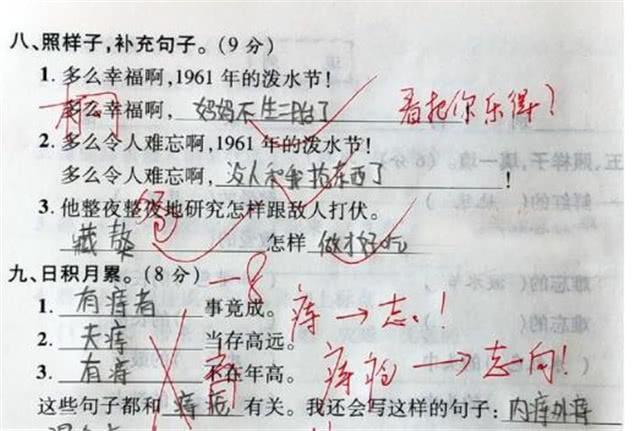 八、照样子,补充句子。(9分)
1. 多么幸福啊,1961年的泼水节!
多么幸福啊,妈妈不生二胎了
看把你乐得?
2. 多么令人难忘啊,1961年的泼水节!
多么令人难忘啊,没人和我抢东西了!
3. 他整夜整夜地研究怎样跟敌人打伏。
藏獒 怎样 做才好吃
九、日积月累。(8分) -8
1. 有痔者 事竟成。 痔→志!
2. 夫痔 当存高远。
3. 有痔 不在年高。 痔疮→志向!
这些句子都和 痔疮 有关。我还会写这样的句子:内痔外痔